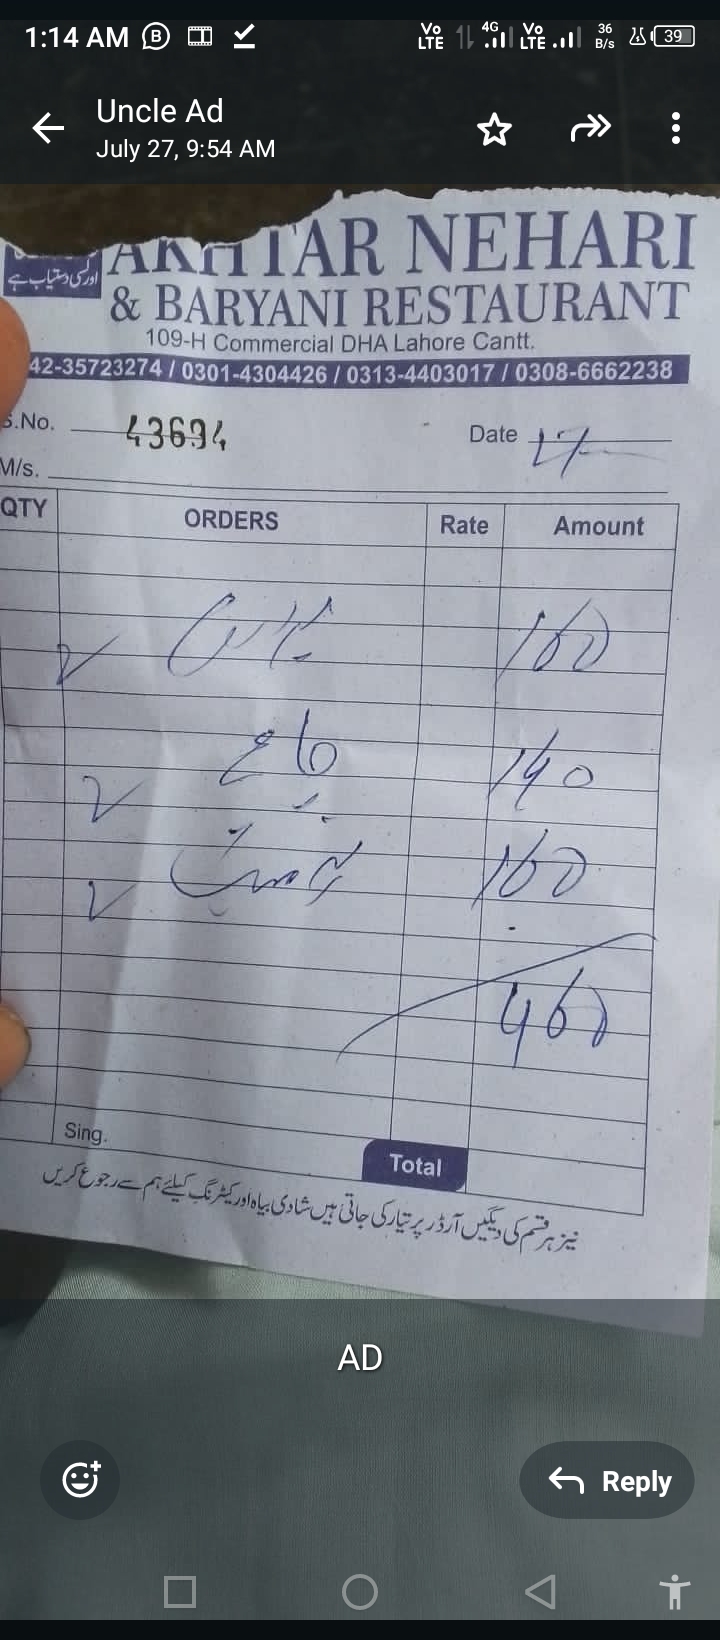 1:14 AM
Vo LTE 4G Vo LTE 36 B/s 39
Uncle Ad
July 27, 9:54 AM
AKHTAR NEHARI
اور کی دستیاب ہے
& BARYANI RESTAURANT
109-H Commercial DHA Lahore Cantt.
42-35723274 / 0301-4304426 / 0313-4403017 / 0308-6662238
S.No. 43694 Date 17
M/s.
QTY ORDERS Rate Amount
2 160
2 چائے 140
2 160
460
Sing.
Total
نیز ہر قسم کی دیگیں آرڈر پر تیار کی جاتی ہیں شادی بیاہ اور کیٹرنگ کیلئے ہم سے رجوع کریں
AD
Reply